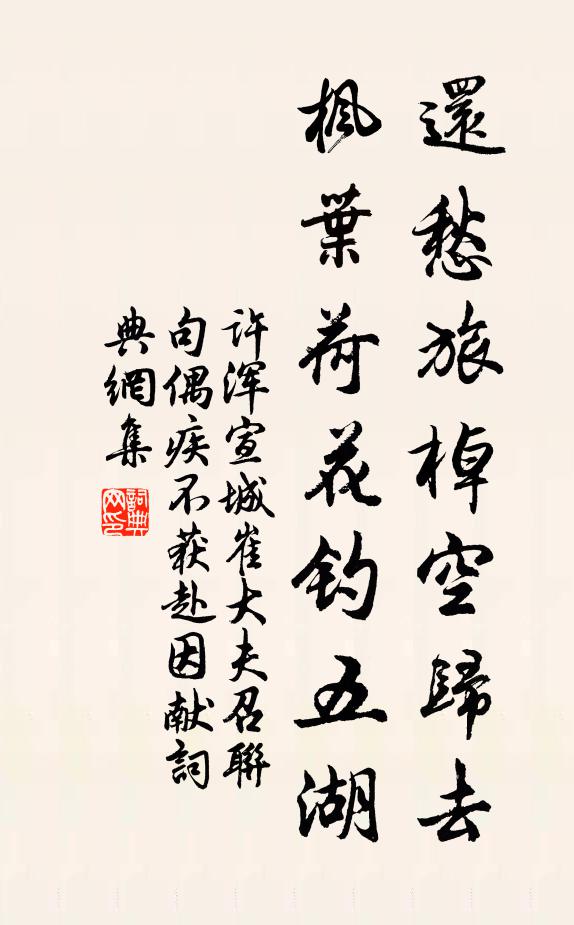 還愁旅棹空歸去
枫葉荷花釣五湖
许浑宣城崔大夫召聯
句偶疾不获赴因献詞
典網集
詞典
网印